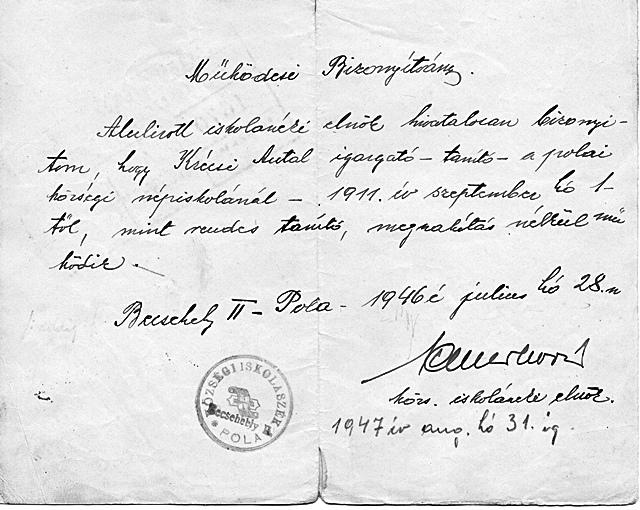 Működési Bizonyítvány.
Alulírott iskolaszéki elnök hivatalosan bizonyí-
tom, hogy Krécsi Antal igazgató – tanító – a polai
községi népiskolánál – 1911. év szeptember hó 1-
től, mint rendes tanító, megszakítás nélkül mű
ködik. –
Becsehely II – Pola – 1946 é július hó 28.n
közs. iskolaszéki elnök.
1947 év aug. hó 31. ig.
KÖZSÉGI ISKOLASZÉK
Becsehely
* POLA *